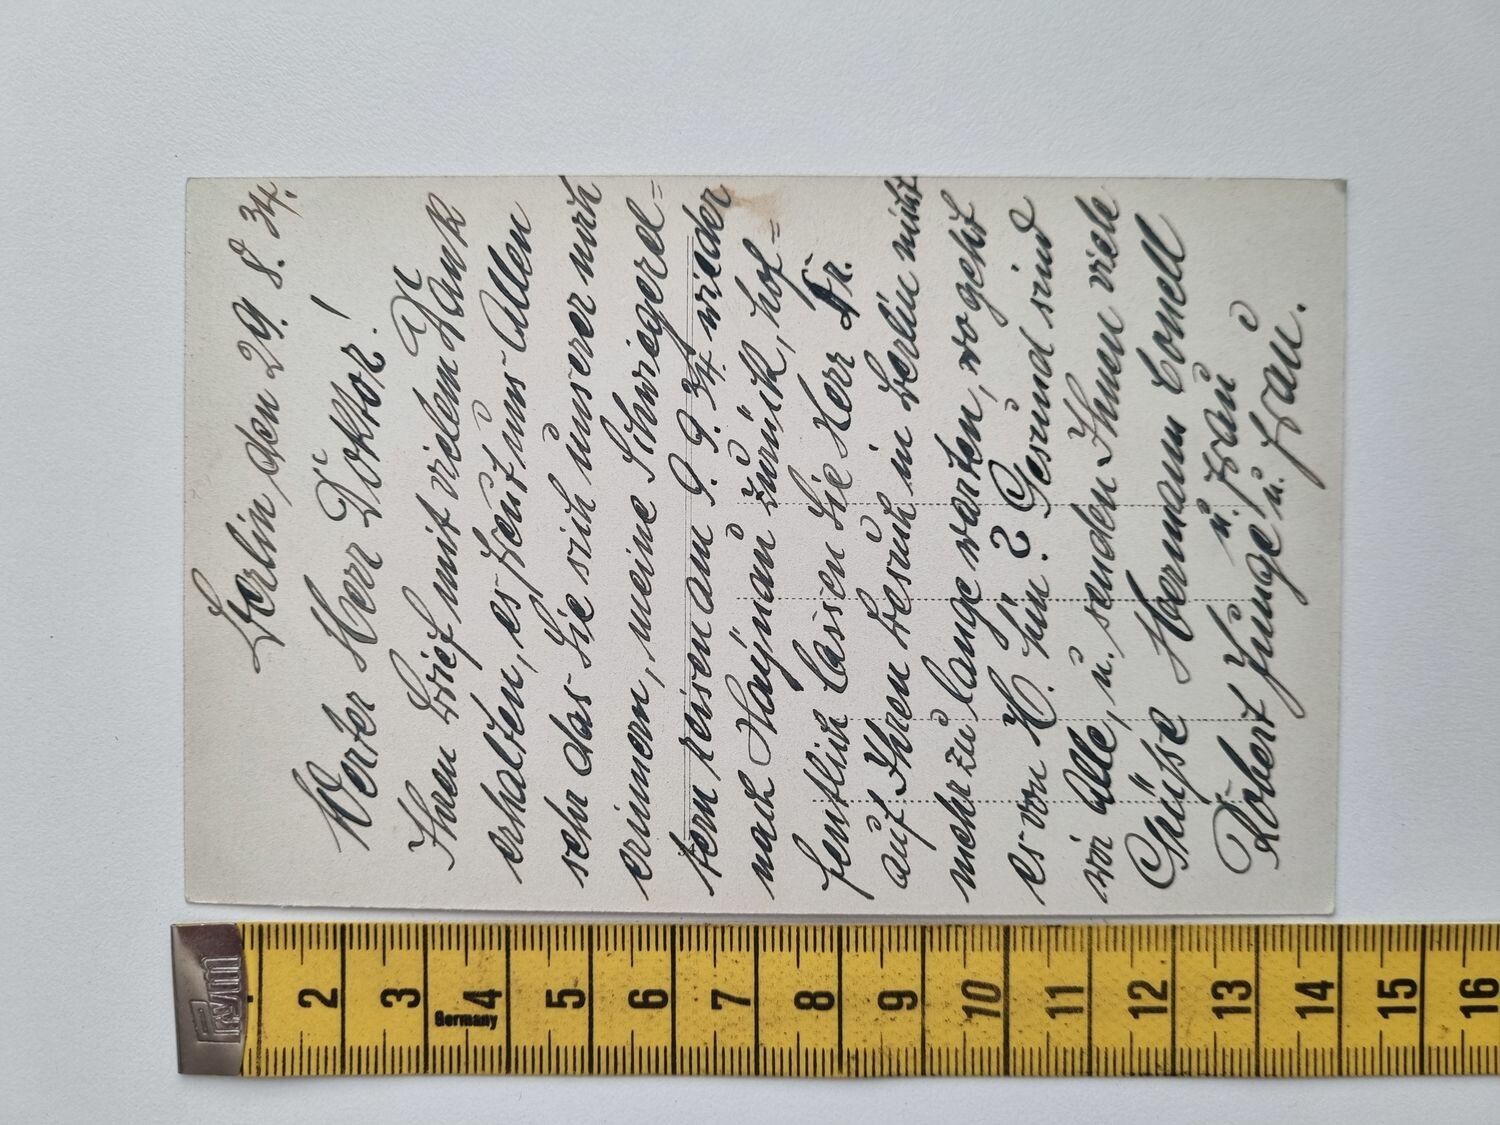 Berlin, den 29. 8. 34.
Werter Herr Doktor!
Ihren Brief mit vielem Dank
erhalten, es freut uns Allen
sehr das Sie sich unserer noch
erinnern, meine Schwiegerel=
tern reisen am 9. 9. 34. wieder
nach Haynau zurück, hof=
fentlich lassen Sie Herr Dr.
auf Ihren Besuch in Berlin nicht
mehr zu lange warten, wo geht
es von H. hin? Gesund sind
wir Alle, u. senden Ihnen viele
Grüsse Hermann Conell
u. Frau
Robert Junge u. Frau.
Prym
Germany
2 3 4 5 6 7 8 9 10 11 12 13 14 15 16